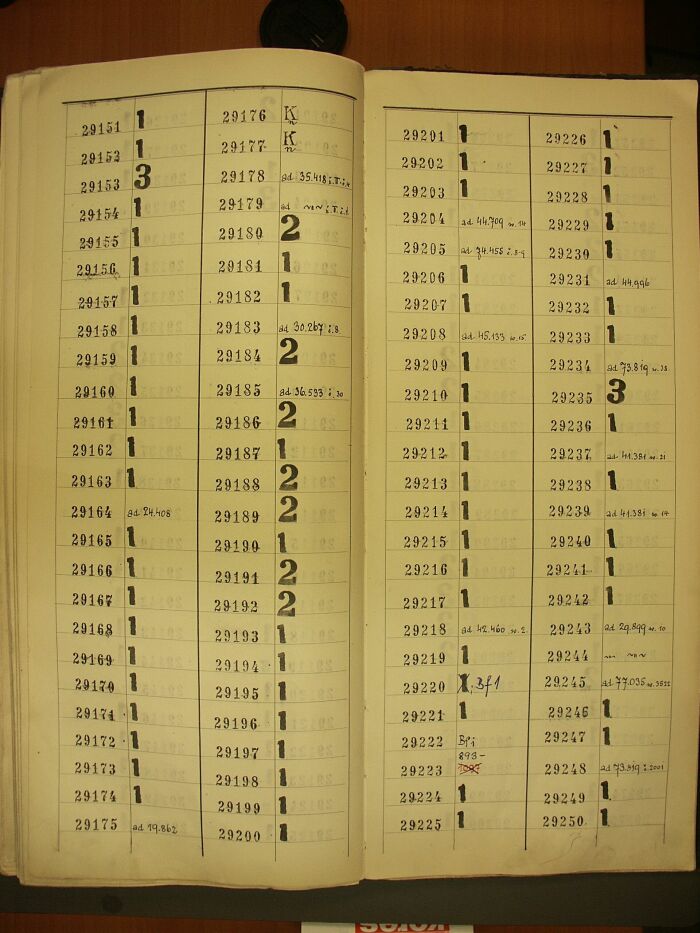 29151 1
29152 1
29153 3
29154 1
29155 1
29156 1
29157 1
29158 1
29159 1
29160 1
29161 1
29162 1
29163 1
29164 ad 24.408
29165 1
29166 1
29167 1
29168 1
29169 1
29170 1
29171 1
29172 1
29173 1
29174 1
29175 ad 19.862
29176 K
29177 K
29178 ad 35.418
29179 ad
29180 2
29181 1
29182 1
29183 ad 30.267 i. 8
29184 2
29185 ad 36.533 i. 30
29186 2
29187 1
29188 2
29189 2
29190 1
29191 2
29192 2
29193 1
29194 1
29195 1
29196 1
29197 1
29198 1
29199 1
29200 1
29201 1
29202 1
29203 1
29204 ad 44.709 w. 14
29205 ad 74.458
29206 1
29207 1
29208 ad 45.133 w. 15
29209 1
29210 1
29211 1
29212 1
29213 1
29214 1
29215 1
29216 1
29217 1
29218 ad 42.460 w. 2
29219 1
29220 Bf1
29221 1
29222
29223 893-
29224 1
29225 1
29226 1
29227 1
29228 1
29229 1
29230 1
29231 ad 44.996
29232 1
29233 1
29234 ad 73.819
29235 3
29236 1
29237 ad 41.381 w. 21
29238 1
29239 ad 41.381 w. 14
29240 1
29241 1
29242 1
29243 ad 29.899 w. 10
29244
29245 ad 77.035
29246 1
29247 1
29248 ad 73.319 i. 2001
29249 1
29250 1